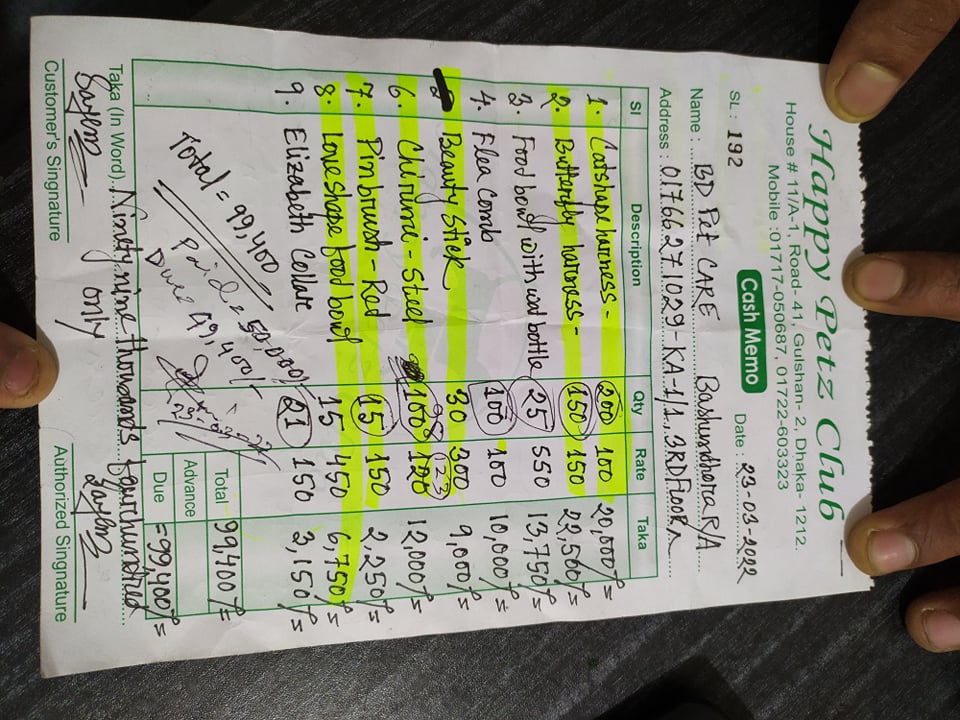 Happy Petz Club
House # 11/A-1, Road- 41, Gulshan- 2, Dhaka- 1212.
Mobile :01717-050687, 01722-603323
Cash Memo
SL : 192 Date : 23-03-2022
Name : BD Pet CARE Bashundhora R/A
Address : 01766271029-KA-1/1, 3RD FLOOR
Sl Description Qty Rate Taka
1. Catshape harness - 200 100 20,000/=
2. Butterfly harness - 150 150 22,500/=
3. Food bowl with wat bottle 25 550 13,750/=
4. Flea Comb 100 100 10,000/=
Beauty Stick 30 300 9,000/=
98 123
6. Chirunni - Steel 100 120 12,000/=
7. Pin brush - Red 15 150 2,250/=
8. Love shape food bowl 15 450 6,750/=
9. Elizabeth Collar 21 150 3,150/=
Total = 99,400
Paid = 50,000/-
Due = 49,400/-
23-03-22
Total 99,400/=
Advance
Due =99,400/=
Taka (In Word) Ninety nine thousands four hundred
only
Sayem Sayem
Customer's Singnature Authorized Singnature